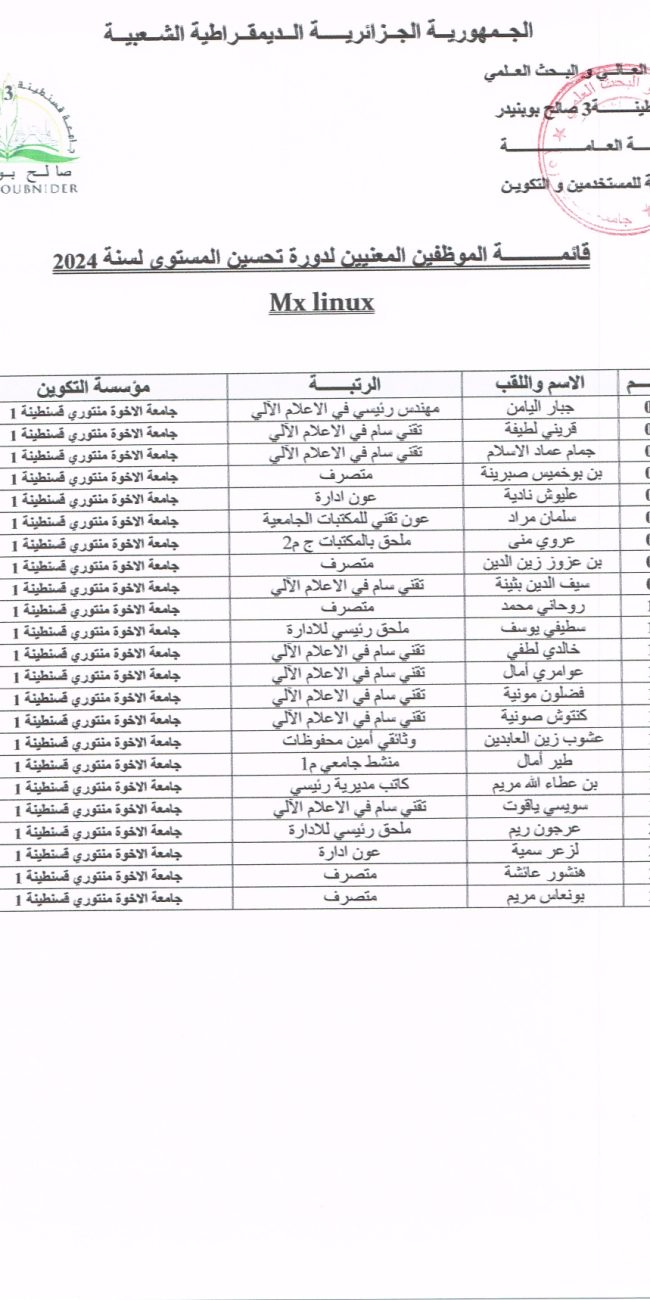 الجمهورية الجزائرية الديمقراطية الشعبية
العالي و البحث العلمي
3 صالح بوبنيدر
العامة
للمستخدمين و التكوين
3
جامعة قسنطينة
صالح بو
OUBNIDER
قائمة الموظفين المعنيين لدورة تحسين المستوى لسنة 2024
Mx linux
الاسم واللقب الرتبة مؤسسة التكوين
جبار اليامن مهندس رئيسي في الاعلام الآلي جامعة الاخوة منتوري قسنطينة 1
قريني لطيفة تقني سام في الاعلام الآلي جامعة الاخوة منتوري قسنطينة 1
جمام عماد الاسلام تقني سام في الاعلام الآلي جامعة الاخوة منتوري قسنطينة 1
بن بوخميس صبرينة متصرف جامعة الاخوة منتوري قسنطينة 1
عليوش نادية عون ادارة جامعة الاخوة منتوري قسنطينة 1
سلمان مراد عون تقني للمكتبات الجامعية جامعة الاخوة منتوري قسنطينة 1
عروي منى ملحق بالمكتبات ج م2 جامعة الاخوة منتوري قسنطينة 1
بن عزوز زين الدين متصرف جامعة الاخوة منتوري قسنطينة 1
سيف الدين بثينة تقني سام في الاعلام الآلي جامعة الاخوة منتوري قسنطينة 1
روحاني محمد متصرف جامعة الاخوة منتوري قسنطينة 1
سطيفي يوسف ملحق رئيسي للادارة جامعة الاخوة منتوري قسنطينة 1
خالدي لطفي تقني سام في الاعلام الآلي جامعة الاخوة منتوري قسنطينة 1
عوامري أمال تقني سام في الاعلام الآلي جامعة الاخوة منتوري قسنطينة 1
فضلون مونية تقني سام في الاعلام الآلي جامعة الاخوة منتوري قسنطينة 1
كنتوش صونية تقني سام في الاعلام الآلي جامعة الاخوة منتوري قسنطينة 1
عشوب زين العابدين وثائقي أمين محفوظات جامعة الاخوة منتوري قسنطينة 1
طير أمال منشط جامعي م1 جامعة الاخوة منتوري قسنطينة 1
بن عطاء الله مريم كاتب مديرية رئيسي جامعة الاخوة منتوري قسنطينة 1
سويسي ياقوت تقني سام في الاعلام الآلي جامعة الاخوة منتوري قسنطينة 1
عرجون ريم ملحق رئيسي للادارة جامعة الاخوة منتوري قسنطينة 1
لزعر سمية عون ادارة جامعة الاخوة منتوري قسنطينة 1
هنشور عائشة متصرف جامعة الاخوة منتوري قسنطينة 1
بونعاس مريم متصرف جامعة الاخوة منتوري قسنطينة 1